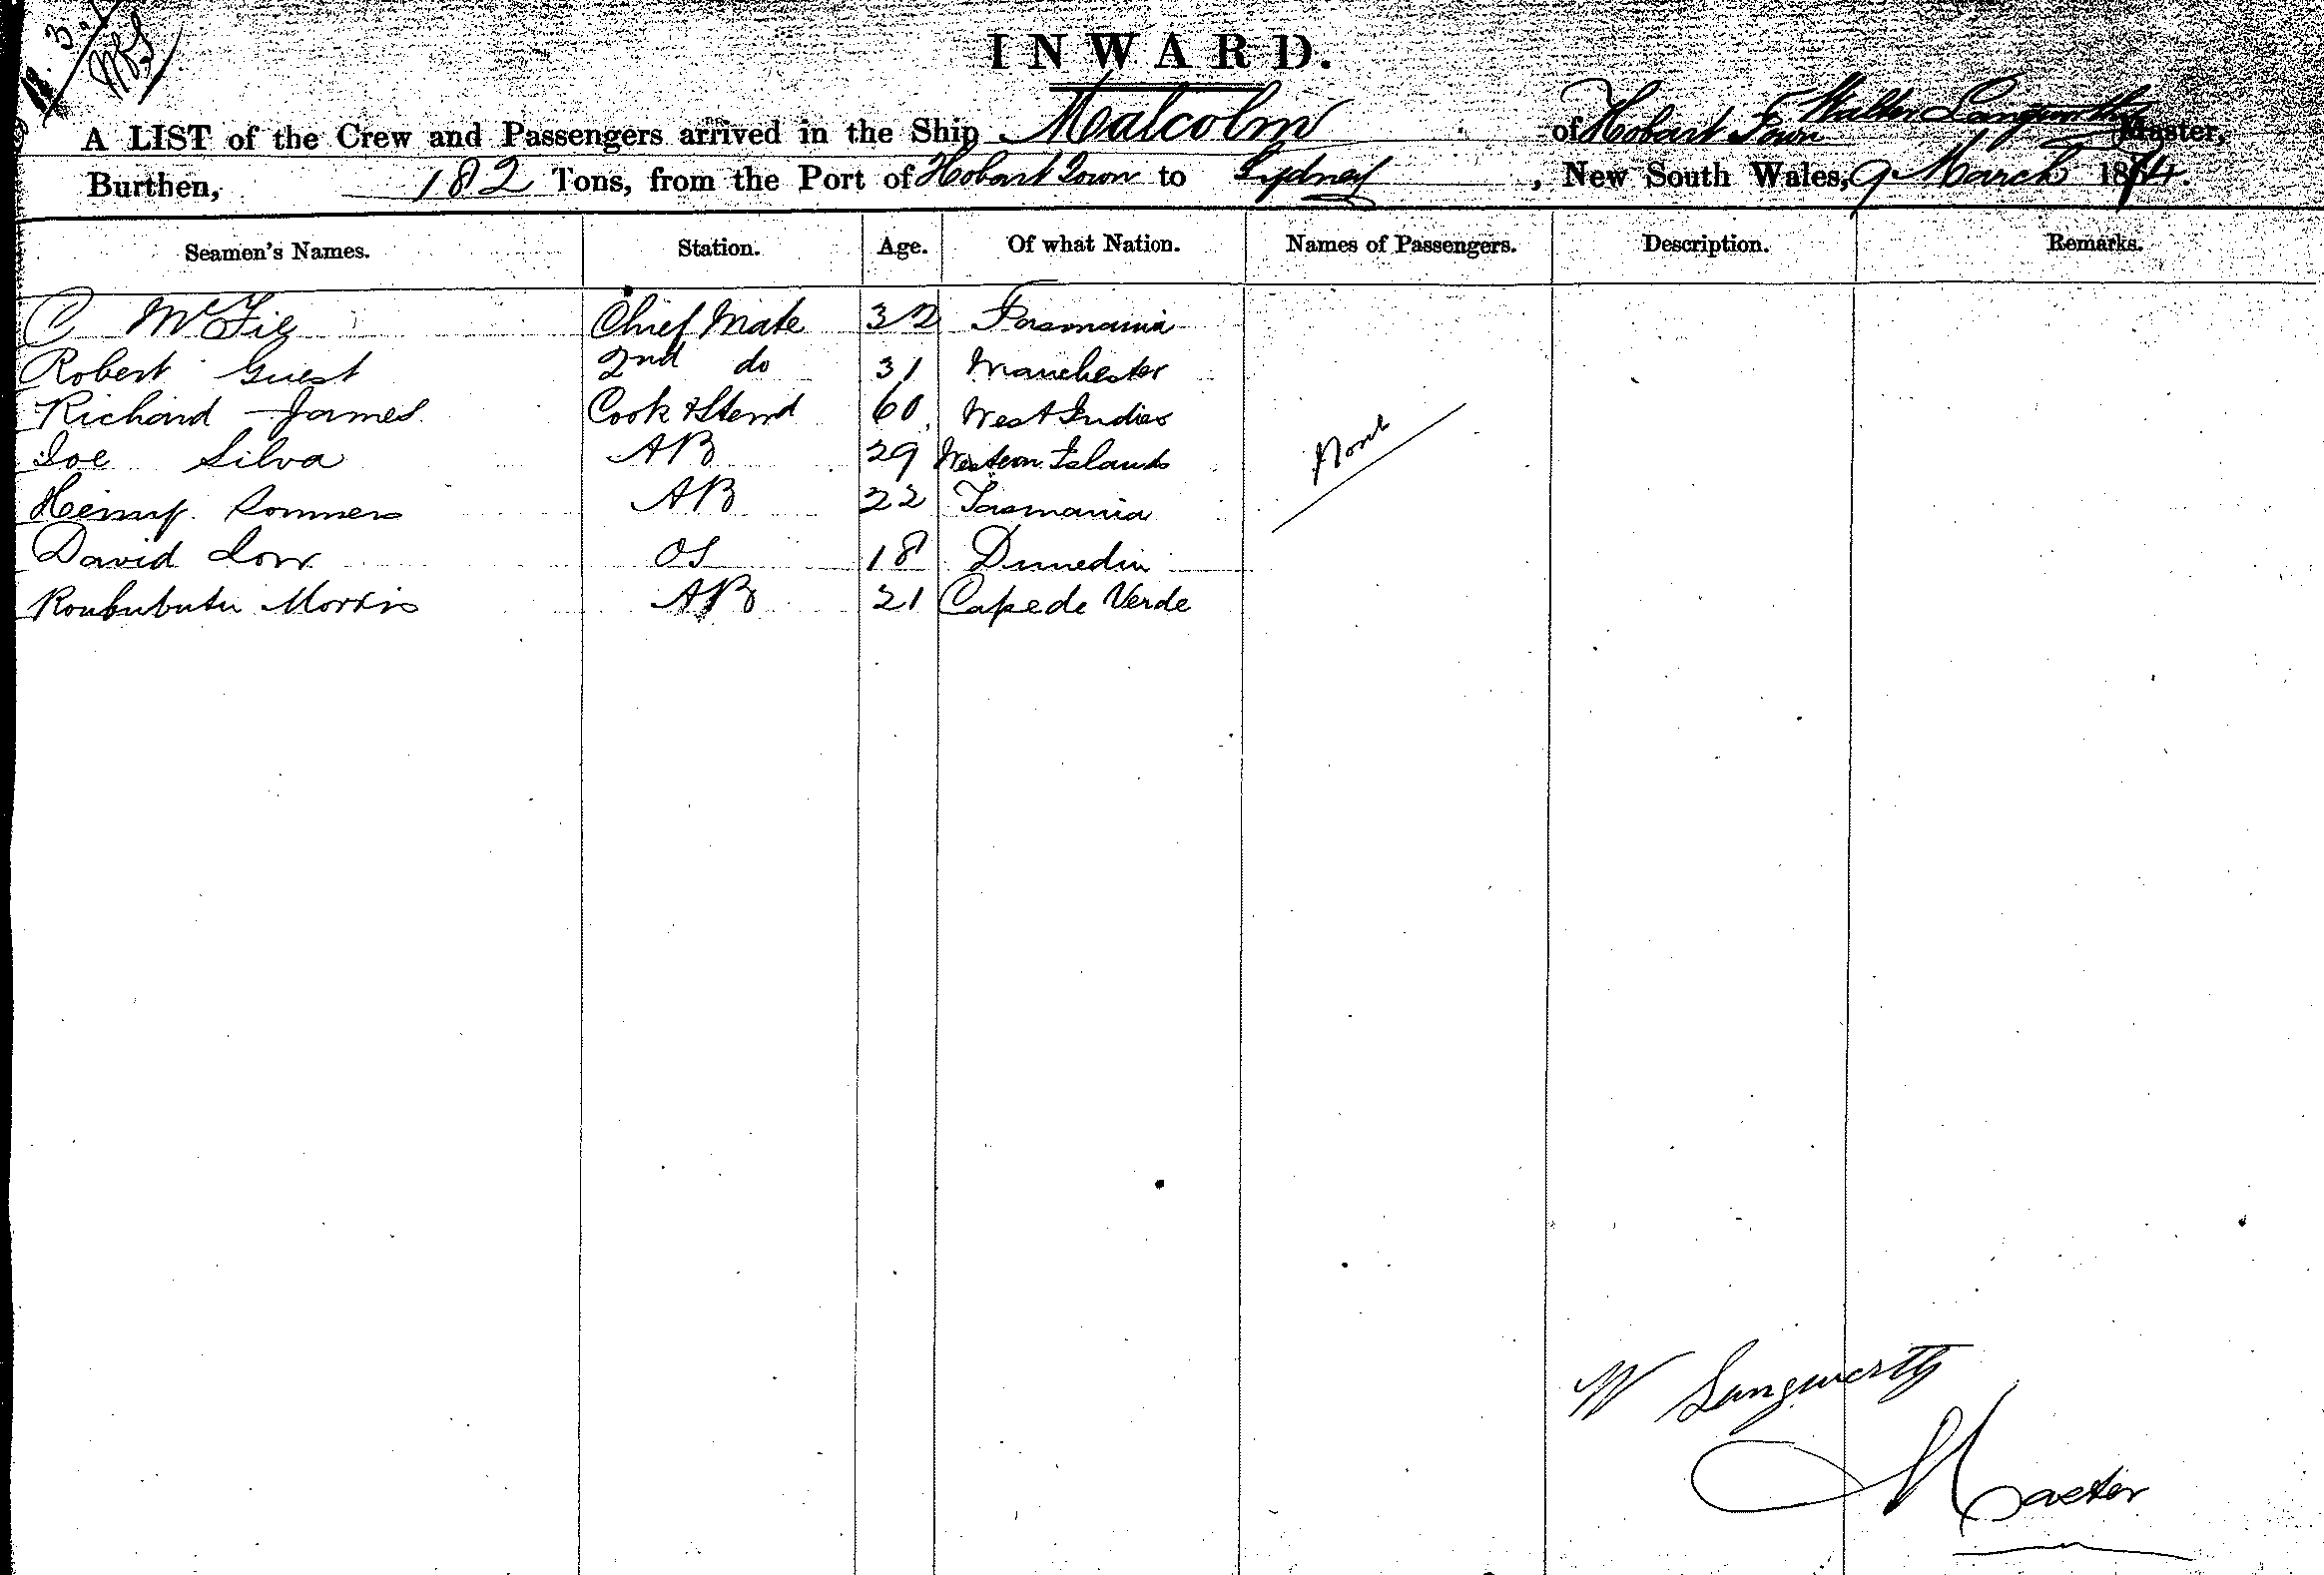 INWARD.
A LIST of the Crew and Passengers arrived in the Ship Malcolm of Hobart Town Walter Langworthy Master,
Burthen, 182 Tons, from the Port of Hobart Town to Sydney, New South Wales, 9 March 1874.
Seamen's Names. Station. Age. Of what Nation. Names of Passengers. Description. Remarks.
C McFie Chief Mate 32 Tasmania
Robert Guest 2nd do 31 Manchester
Richard James Cook & Stewd 60 West Indies
Joe Silva AB 29 Western Islands
None
Henry Sommers AB 22 Tasmania
David Low OS 18 Dunedin
Morris AB 21 Cape de Verde
W Langworthy
Master